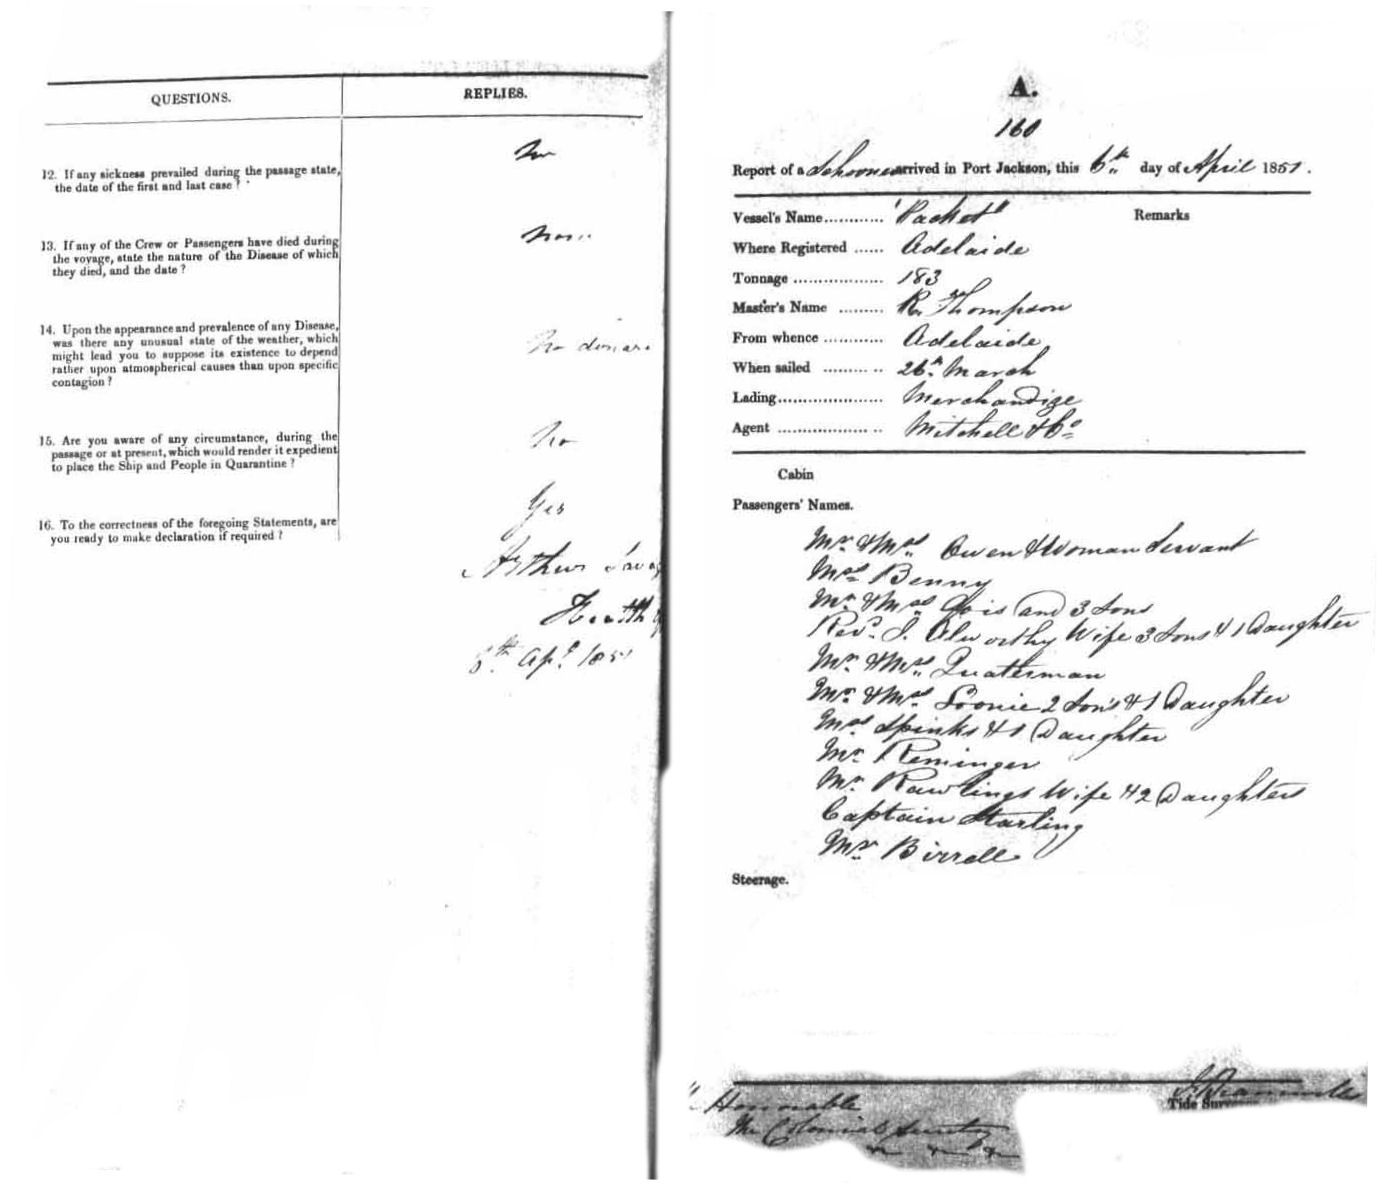 QUESTIONS.
REPLIES.
12. If any sickness prevailed during the passage state,
the date of the first and last case?
No
13. If any of the Crew or Passengers have died during
the voyage, state the nature of the Disease of which
they died, and the date?
None
14. Upon the appearance and prevalence of any Disease,
was there any unusual state of the weather, which
might lead you to suppose its existence to depend
rather upon atmospherical causes than upon specific
contagion?
No disease
15. Are you aware of any circumstance, during the
passage or at present, which would render it expedient
to place the Ship and People in Quarantine?
No
16. To the correctness of the foregoing Statements, are
you ready to make declaration if required?
Yes
Arthur
Health
6th Apl 1851
A.
160
Report of a Schooner arrived in Port Jackson, this 6th day of April 1851.
Vessel's Name............ "Packet"
Remarks
Where Registered ...... Adelaide
Tonnage .................. 183
Master's Name ......... R. Thompson
From whence ............ Adelaide
When sailed ......... .. 26th March
Lading..................... Merchandize
Agent .................. .. Mitchell & Co
Cabin
Passengers' Names.
Mr. & Mrs. Owen & Woman Servant
Mrs Benny
Mr. & Mrs. Gois and 3 Sons
Revd. J. Olworthy Wife 3 Sons & 1 Daughter
Mr. & Mrs. Quaterman
Mr. & Mrs. Loonie 2 Son's & 1 Daughter
Mrs Spinks & 1 Daughter
Mr. Reminger
Mr. Rawlings Wife & 2 Daughters
Captain Starling
Mr. Birrell
Steerage.
Tide Surveyor
Honorable
The Colonial Secretary